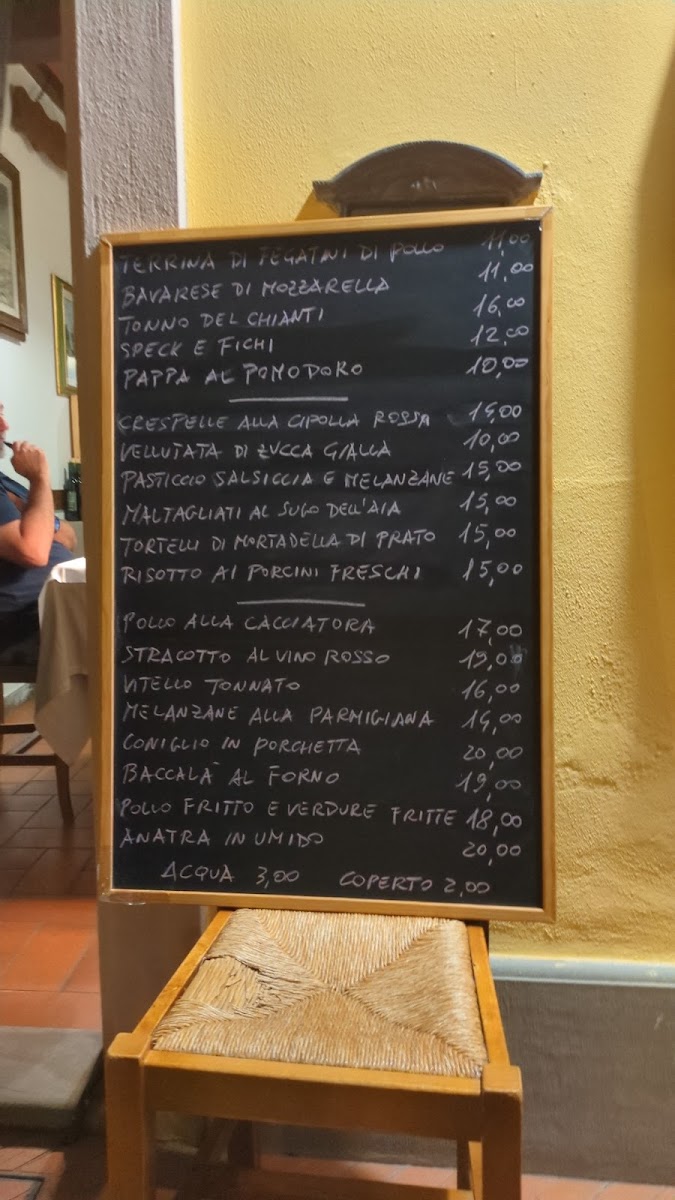 TERRINA DI FEGATINI DI POLLO 11,00
BAVARESE DI MOZZARELLA 11,00
TONNO DEL CHIANTI 16,00
SPECK E FICHI 12,00
PAPPA AL POMODORO 10,00
CRESPELLE ALLA CIPOLLA ROSSA 15,00
VELLUTATA DI ZUCCA GIALLA 10,00
PASTICCIO SALSICCIA E MELANZANE 15,00
MALTAGLIATI AL SUGO DELL'AIA 15,00
TORTELLI DI MORTADELLA DI PRATO 15,00
RISOTTO AI PORCINI FRESCHI 15,00
POLLO ALLA CACCIATORA 17,00
STRACOTTO AL VINO ROSSO 19,00
VITELLO TONNATO 16,00
MELANZANE ALLA PARMIGIANA 14,00
CONIGLIO IN PORCHETTA 20,00
BACCALÀ AL FORNO 19,00
POLLO FRITTO E VERDURE FRITTE 18,00
ANATRA IN UMIDO 20,00
ACQUA 3,00 COPERTO 2,00